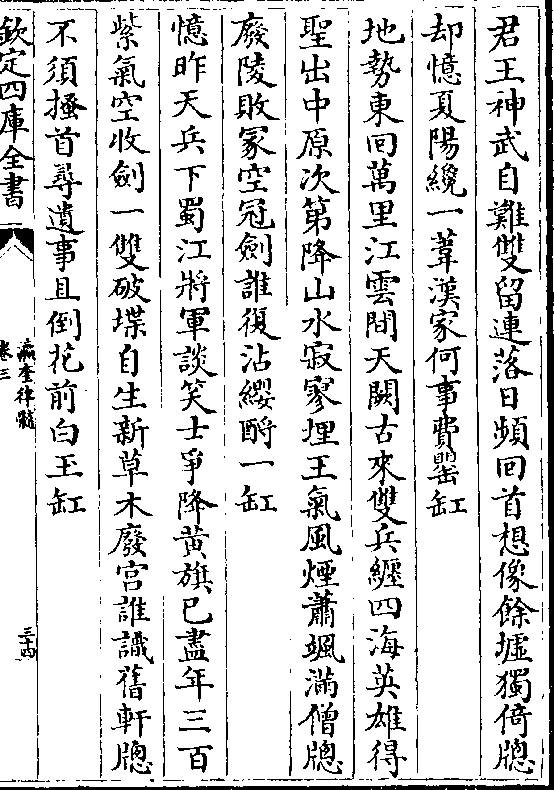 君王神武自難雙留連落日頻回首想像餘墟獨倚牕
却憶夏陽纔一葦漢家何事費罌缸
地勢東回萬里江雲間天闕古來雙兵纏四海英雄得
聖出中原次第降山水寂寥埋王氣風煙蕭颯滿僧牕
廢陵敗冢空冠劍誰復沾纓酹一缸
憶昨天兵下蜀江將軍談笑士爭降黄旗已盡年三百
紫氣空收劍一雙破堞自生新草木廢宫誰識舊軒牕
不須搔首尋遺事且倒花前白玉缸
欽定四庫全書
瀛奎律髓
卷三
三十四